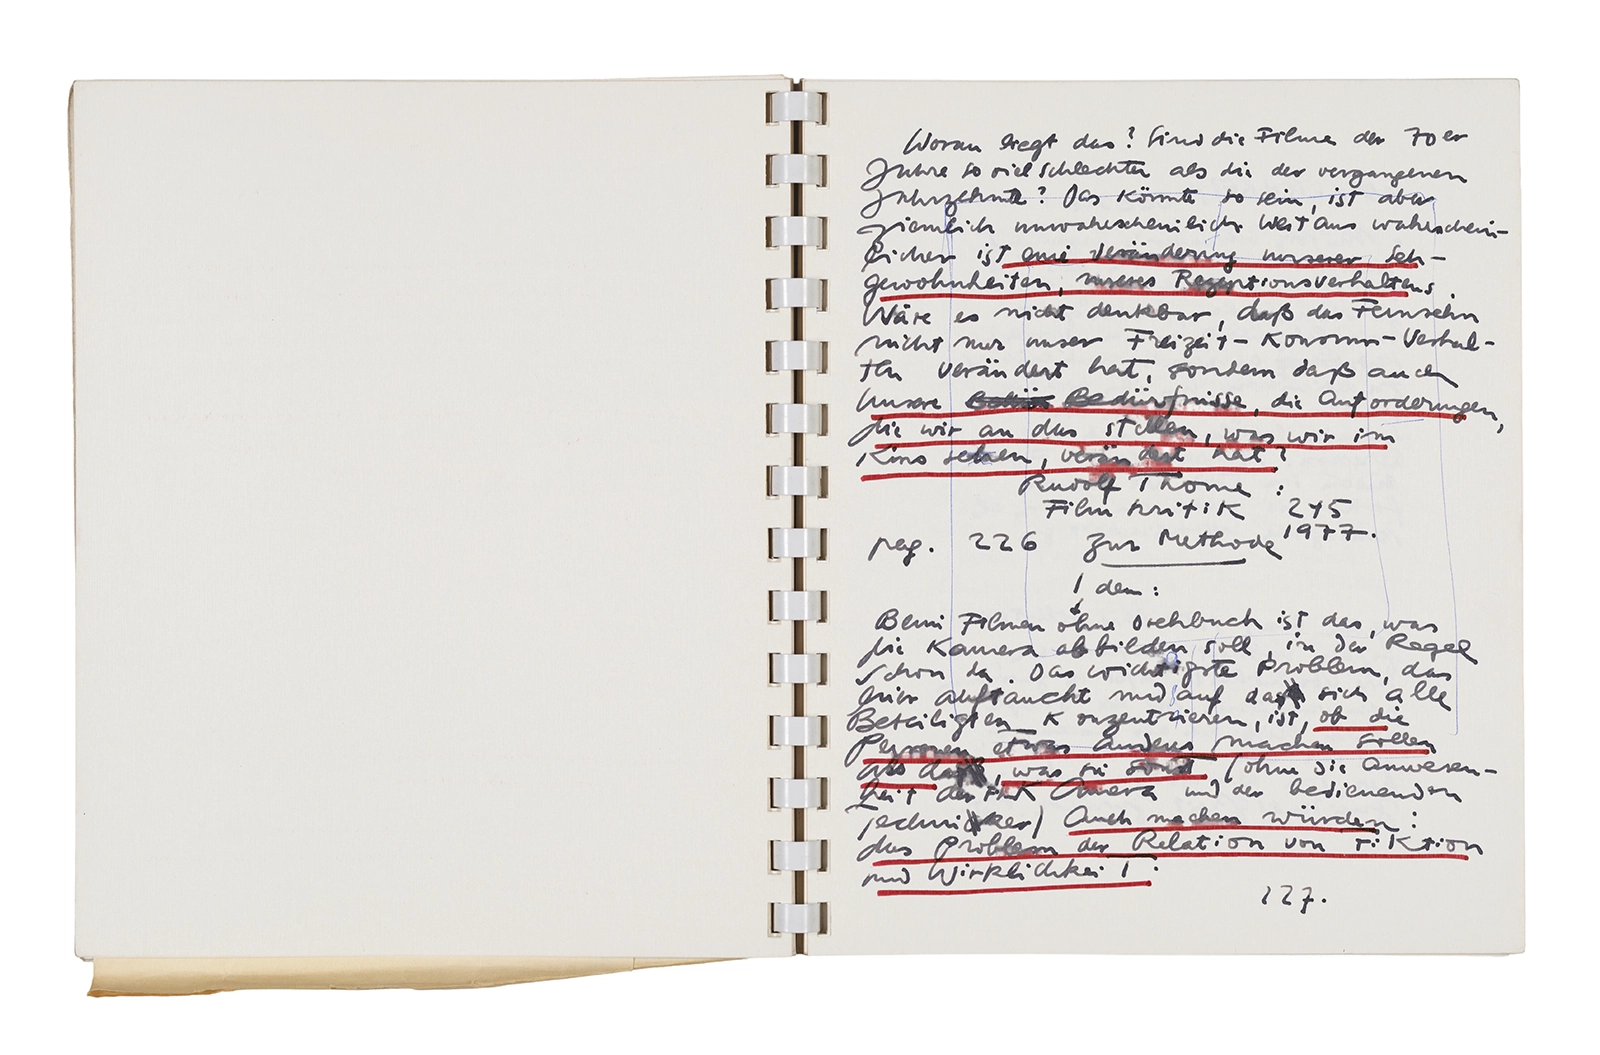 Woran liegt das? Sind die Filme der 70er
Jahre so viel schlechter als die der vergangenen
Jahrzehnte? Das könnte so sein, ist aber
ziemlich unwahrscheinlich. Weitaus wahrschein-
licher ist eine Veränderung unserer Seh-
gewohnheiten, unseres Rezeptionsverhaltens.
Wäre es nicht denkbar, daß das Fernsehn
nicht nur unser Freizeit-Konsum-Verhal-
ten verändert hat, sondern daß auch
unsere Bedürfnisse, die Anforderungen,
die wir an das stellen, was wir im
Kino sehen, verändert hat?
Rudolf Thome :
Filmkritik 245
1977.
pag. 226 zur Methode
Idem:
Beim Filmen ohne Drehbuch ist das, was
die Kamera abbilden soll, in der Regel
schon da. Das wichtigste Problem, das
hier auftaucht und auf das sich alle
Beteiligten konzentrieren, ist, ob die
Personen etwas anderes machen sollen
als das, was sie sonst (ohne die Anwesen-
heit der Kamera und der bedienenden
Techniker) auch machen würden:
das Problem der Relation von Fiktion
und Wirklichkeit.
227.